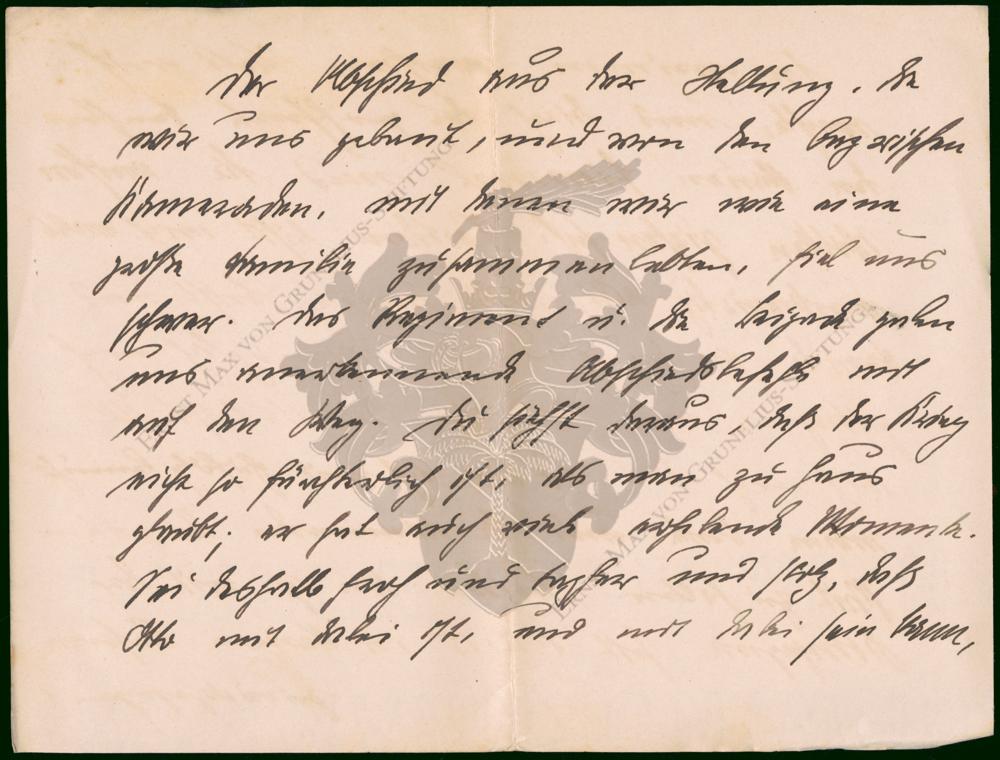 Der Abschied aus der Stellung, die
wir uns gebaut, und von den bayrischen
Kameraden, mit denen wir wie eine
große Familie zusammen lebten, fiel uns
schwer. Das Regiment u. die Brigade gaben
uns anerkennende Abschiedsbefehle mit
auf den Weg. Du siehst daraus, daß der Krieg
nicht so fürchterlich ist, als man zu Haus
glaubt; er hat auch viele erhebende Momente.
Sei deshalb froh und tapfer und stolz, daß
Otto mit dabei ist, und mit dabei sein kann,
ERNST MAX VON GRUNELIUS-STIFTUNG
ERNST MAX VON GRUNELIUS-STIFTUNG